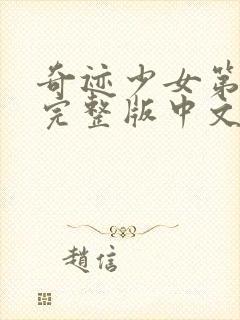 奇迹少女第
完整版中文
趙信